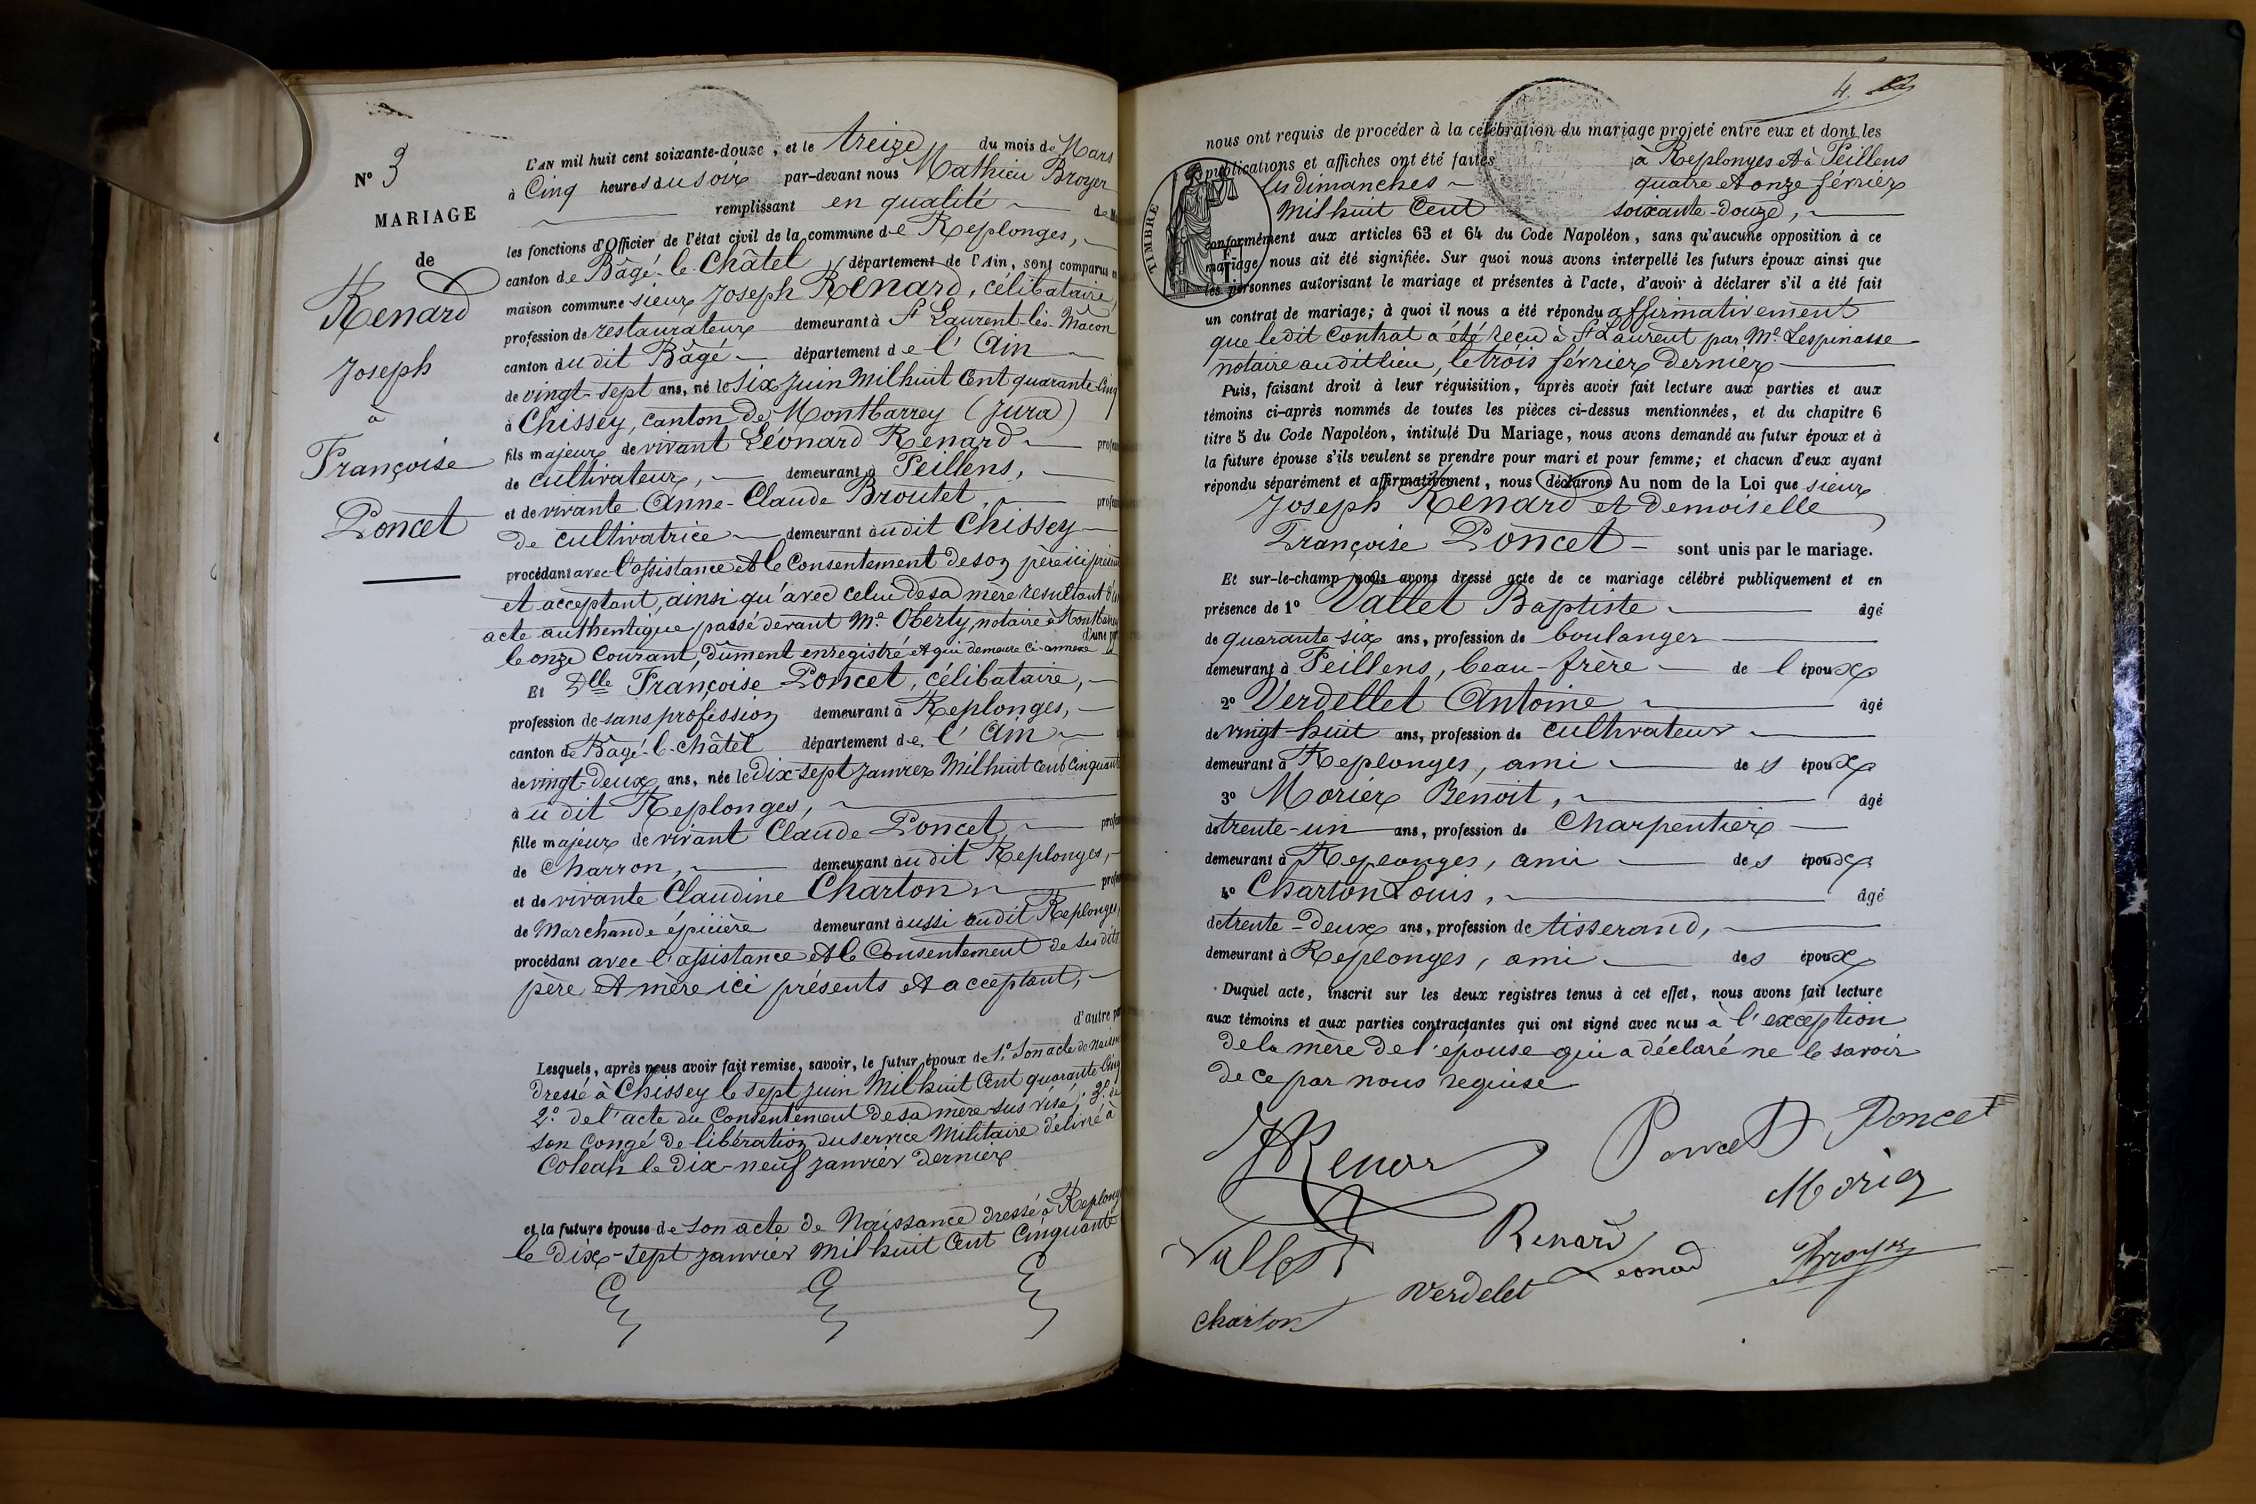 N° 3
MARIAGE
de
Renard
Joseph
à
Françoise
Poncet
L'AN mil huit cent soixante-douze, et le treize du mois de Mars
à Cinq heures du soir par-devant nous Mathieu Broyer
remplissant en qualité de M
les fonctions d'Officier de l'état civil de la commune de Replonges,
canton de Bâgé-le-Châtel département de l'Ain, sont comparus en
maison commune sieur Joseph Renard, célibataire,
profession de restaurateur demeurant à St Laurent-lès-Mâcon
canton du dit Bâgé département de l'Ain
de vingt-sept ans, né le Six Juin Mil huit Cent quarante Cinq
à Chissey, canton de Montbarrey (Jura)
fils majeur de vivant Léonard Renard profes
de cultivateur, demeurant à Feillens,
et de vivante Anne-Claude Broutet, profes
de cultivatrice demeurant au dit Chissey
procédant avec l'assistance et le Consentement de son père ici présent
et acceptant, ainsi qu'avec celui de sa mère résultant d'un
acte authentique passé devant Me Oberty, notaire à Montbarrey
d'une par
le onze Courant, dûment enregistré et qui demeure ci-annexé
Et Dlle Françoise Poncet, célibataire,
profession de sans profession demeurant à Replonges,
canton de Bâgé-le-Châtel département de l'Ain
de vingt-deux ans, née le Dix sept Janvier Mil huit Cent Cinquante
à u dit Replonges,
fille majeure de vivant Claude Poncet, profes
de Charron, demeurant au dit Replonges,
et de vivante Claudine Charton profes
de Marchande épicière demeurant aussi audit Replonges,
procédant avec l'assistance et le Consentement de ses dits
père et mère ici présents et acceptant,
d'autre par
Lesquels, après nous avoir fait remise, savoir, le futur époux de 1.° Son acte de Naissance
dressé à Chissey le sept Juin Mil huit Cent quarante Cinq
2.° de l'acte du Consentement de sa mère sus visé; 3.° de
son Congé de libération du service Militaire délivré à
Coleah le Dix-neuf Janvier dernier
et la future épouse de son acte de Naissance dressé à Replonges
le Dix-sept Janvier Mil huit Cent Cinquante
4.
nous ont requis de procéder à la célébration du mariage projeté entre eux et dont les
publications et affiches ont été faites à Replonges et à Feillens
les dimanches quatre et onze février
Mil huit Cent soixante-douze,
TIMBRE
conformément aux articles 63 et 64 du Code Napoléon, sans qu'aucune opposition à ce
mariage nous ait été signifiée. Sur quoi nous avons interpellé les futurs époux ainsi que
les personnes autorisant le mariage et présentes à l'acte, d'avoir à déclarer s'il a été fait
un contrat de mariage; à quoi il nous a été répondu affirmativement
que ledit Contrat a été reçu à St Laurent par Me Lespinasse
notaire audit lieu, le trois février Dernier
Puis, faisant droit à leur réquisition, après avoir fait lecture aux parties et aux
témoins ci-après nommés de toutes les pièces ci-dessus mentionnées, et du chapitre 6
titre 5 du Code Napoléon, intitulé Du Mariage, nous avons demandé au futur époux et à
la future épouse s'ils veulent se prendre pour mari et pour femme; et chacun d'eux ayant
répondu séparément et affirmativement, nous déclarons Au nom de la Loi que sieur
Joseph Renard et Demoiselle
Françoise Poncet sont unis par le mariage.
Et sur-le-champ nous avons dressé acte de ce mariage célébré publiquement et en
présence de 1° Vallet Baptiste âgé
de quarante-six ans, profession de boulanger
demeurant à Feillens, beau-frère de l époux
2° Verdellet Antoine âgé
de vingt-huit ans, profession de cultivateur
demeurant à Replonges, ami de s époux
3° Morier Benoit, âgé
de trente-un ans, profession de Charpentier
demeurant à Replonges, ami de s époux
4° Charton Louis, âgé
de trente-Deux ans, profession de tisserand,
demeurant à Replonges, ami des époux
Duquel acte, inscrit sur les deux registres tenus à cet effet, nous avons fait lecture
aux témoins et aux parties contractantes qui ont signé avec nous à l'exception
de la mère de l'épouse qui a déclaré ne le savoir
de ce par nous requise
JRenard Poncet Poncet
Morier
Vallet Renard Léonard Broyer
Verdelet
Charton